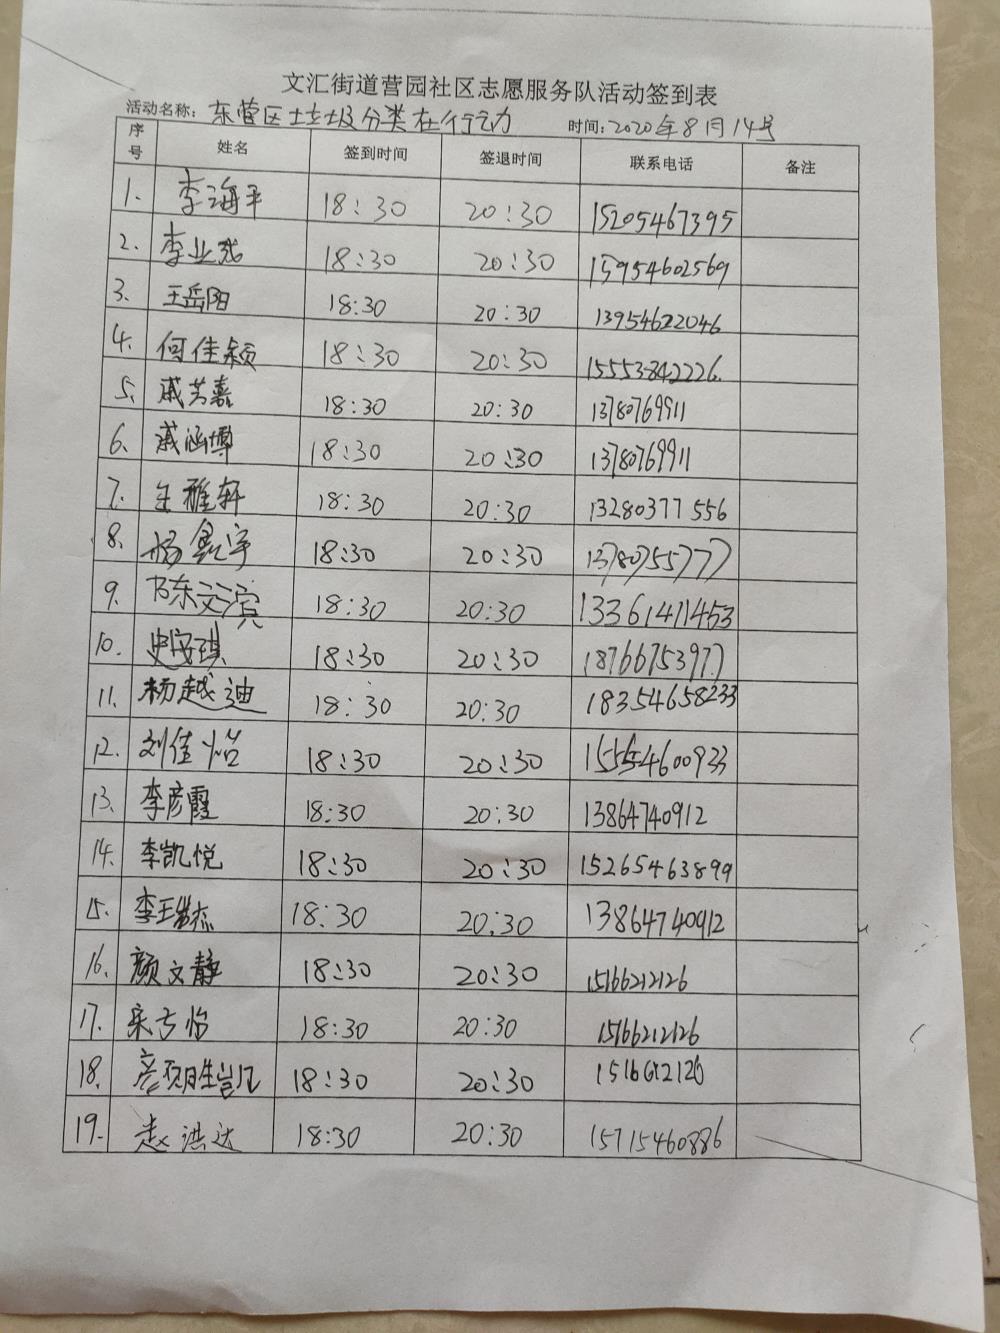 文汇街道营园社区志愿服务队活动签到表
活动名称：东营区垃圾分类在行动 时间：2020年8月14号
序号 姓名 签到时间 签退时间 联系电话 备注
1. 李海平 18:30 20:30 15205467395
2. 李业成 18:30 20:30 15954602569
3. 王岳阳 18:30 20:30 13954622046
4. 何佳颖 18:30 20:30 15553842226.
5. 戚芸嘉 18:30 20:30 13780769911
6. 戚涵博 18:30 20:30 13780769911
7. 王雅轩 18:30 20:30 13280377556
8. 杨鑫宇 18:30 20:30 13780755777
9. 陈文滨 18:30 20:30 13361411453
10. 史安琪 18:30 20:30 18766753977
11. 杨越迪 18:30 20:30 18354658233
12. 刘佳怡 18:30 20:30 15554600933
13. 李彦霞 18:30 20:30 13864740912
14. 李凯悦 18:30 20:30 15265463899
15. 18:30 20:30 13864740912
16. 颜文静 18:30 20:30 15166212126
17. 18:30 20:30 15166212126
18. 18:30 20:30
19. 赵洪达 18:30 20:30 15715460886